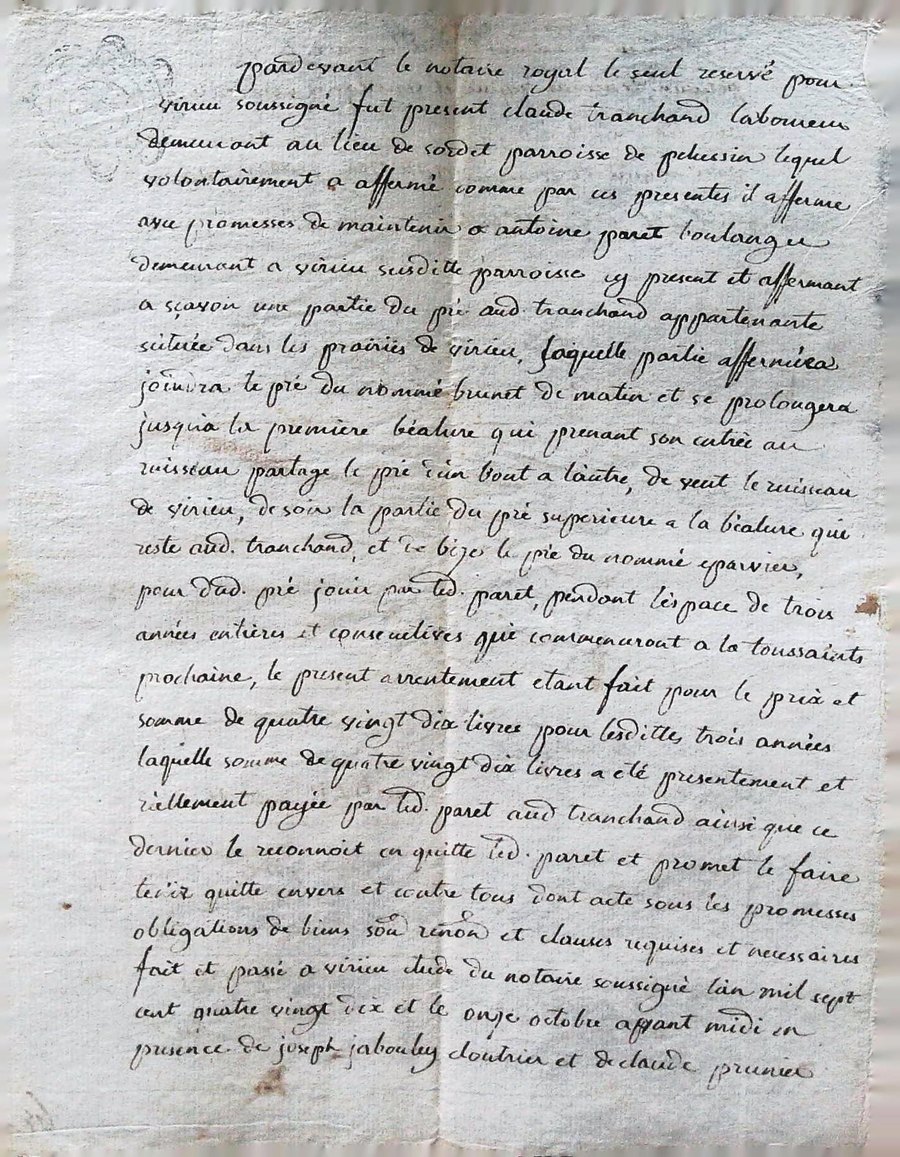 pardevant le notaire royal le seul reservé pour
virieu soussigné fut present claude tranchand laboureur
demeurant au lieu de sordet parroisse de pelussin lequel
volontairement a affermé comme par ces presentes il afferme
avec promesses de maintenir a antoine paret boulanger
demeurant a virieu susditte parroisse cy present et affermant
a sçavoir une partie du pré aud. tranchand appartenante
scituée dans les prairies de virieu, laquelle partie affermée
joindra le pré du nommé brunet de matin et se prolongera
jusqu'a la première béalure qui prenant son entrée au
ruisseau partage le pré d'un bout a l'autre, de vent le ruisseau
de virieu, de soir la partie du pré superieure a la béalure qui
reste aud. tranchand, et de bize le pré du nommé eparvier,
pour dud. pré jouir par led. paret, pendant l'espace de trois
années entières et consecutives qui commenceront a la toussaints
prochaine, le present arrentement etant fait pour le prix et
somme de quatre vingt dix livres pour lesdittes trois années
laquelle somme de quatre vingt dix livres a eté presentement et
réellement payée par led. paret aud. tranchand ainsi que ce
dernier le reconnoit en quitte led. paret et promet le faire
tenir quitte envers et contre tous dont acte sous les promesses
obligations de biens soûm renôn et clauses requises et necessaires
fait et passé a virieu etude du notaire soussigné l'an mil sept
cent quatre vingt dix et le onze octobre avant midi en
presence de joseph jabouley cloutrier et de claude prunier